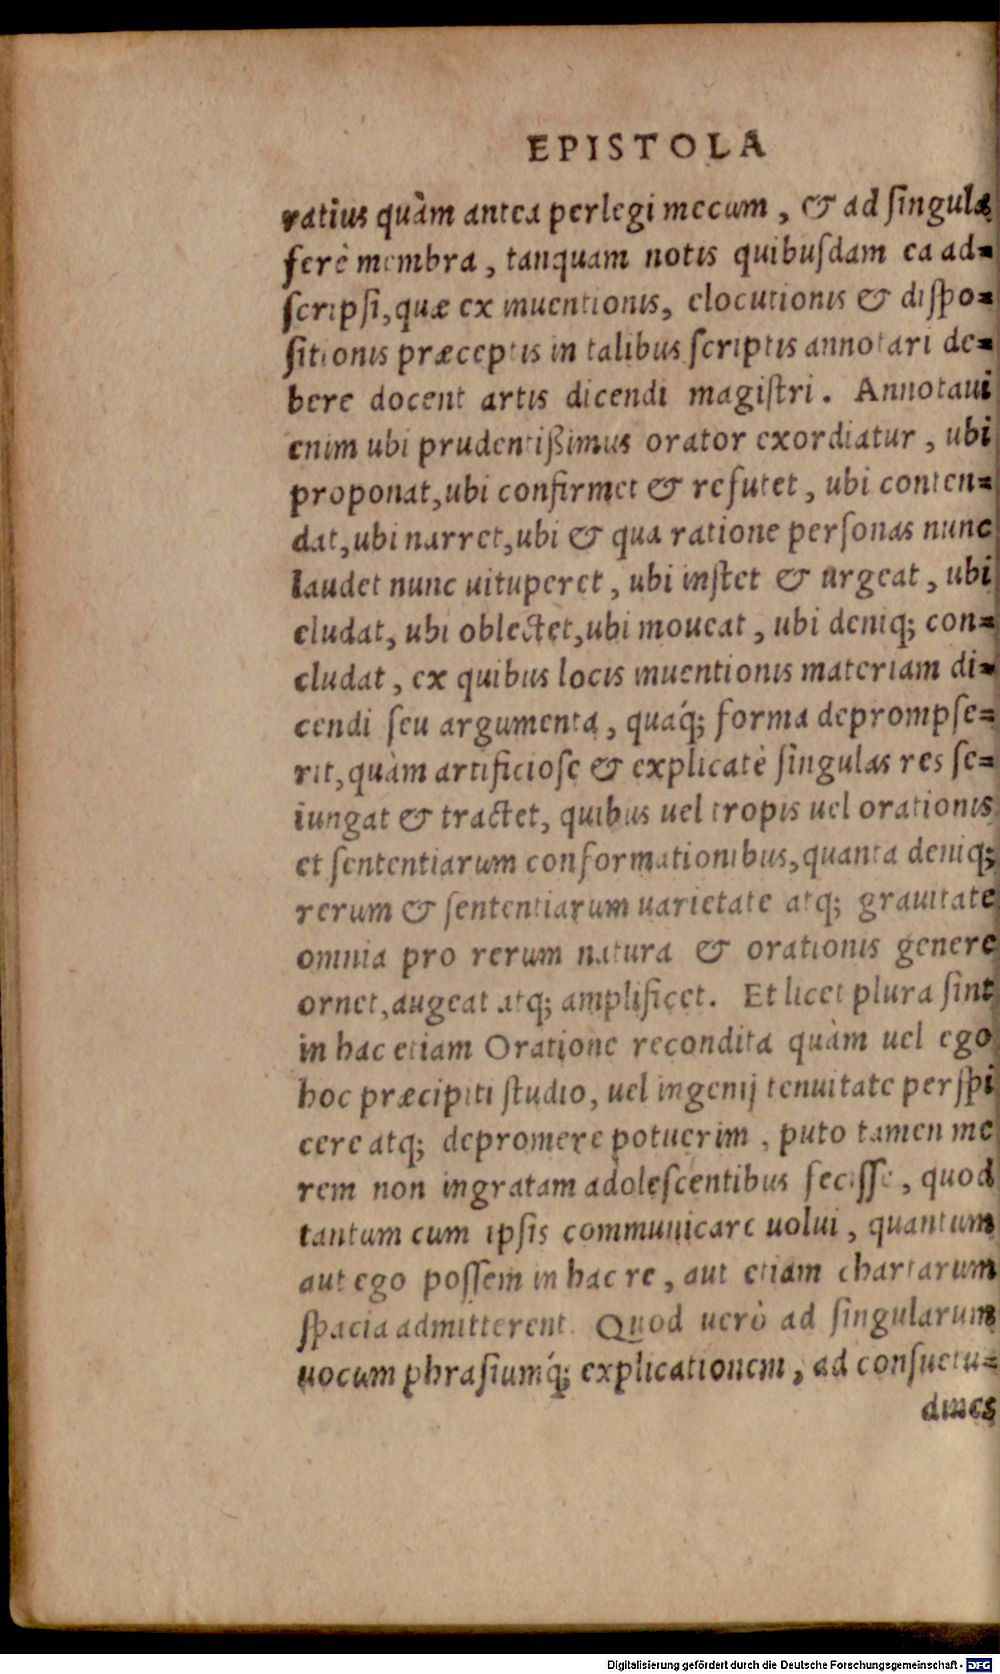 EPISTOLA
ratius quàm antea perlegi mecum, & ad ſingula
ferè membra, tanquam notis quibuſdam ea ad-
ſcripſi, quæ ex inuentionis, elocutionis & diſpo-
ſitionis præceptis in talibus ſcriptis annotari de-
bere docent artis dicendi magiſtri. Annotaui
enim ubi prudentißimus orator exordiatur, ubi
proponat, ubi confirmet & refutet, ubi conten-
dat, ubi narret, ubi & qua ratione perſonas nunc
laudet nunc uituperet, ubi inſtet & urgeat, ubi
eludat, ubi oblectet, ubi moueat, ubi deniq; con-
cludat, ex quibus locis inuentionis materiam di-
cendi ſeu argumenta, quaq́; forma deprompſe-
rit, quàm artificioſe & explicatè ſingulas res ſe-
iungat & tractet, quibus uel tropis uel orationis
et ſententiarum conformationibus, quanta deniq;
rerum & ſententiarum uarietate atq; grauitate
omnia pro rerum natura & orationis genere
ornet, augeat atq; amplificet. Et licet plura ſint
in hac etiam Oratione recondita quàm uel ego
hoc præcipiti ſtudio, uel ingenij tenuitate perſpi
cere atq; depromere potuerim, puto tamen me
rem non ingratam adoleſcentibus feciſſe, quod
tantum cum ipſis communicare uolui, quantum
aut ego poſſem in hac re, aut etiam chartarum
ſpacia admitterent. Quod uerò ad ſingularum
uocum phraſiumq́; explicationem, ad conſuetu-
dines
Digitalisierung gefördert durch die Deutsche Forschungsgemeinschaft - DFG